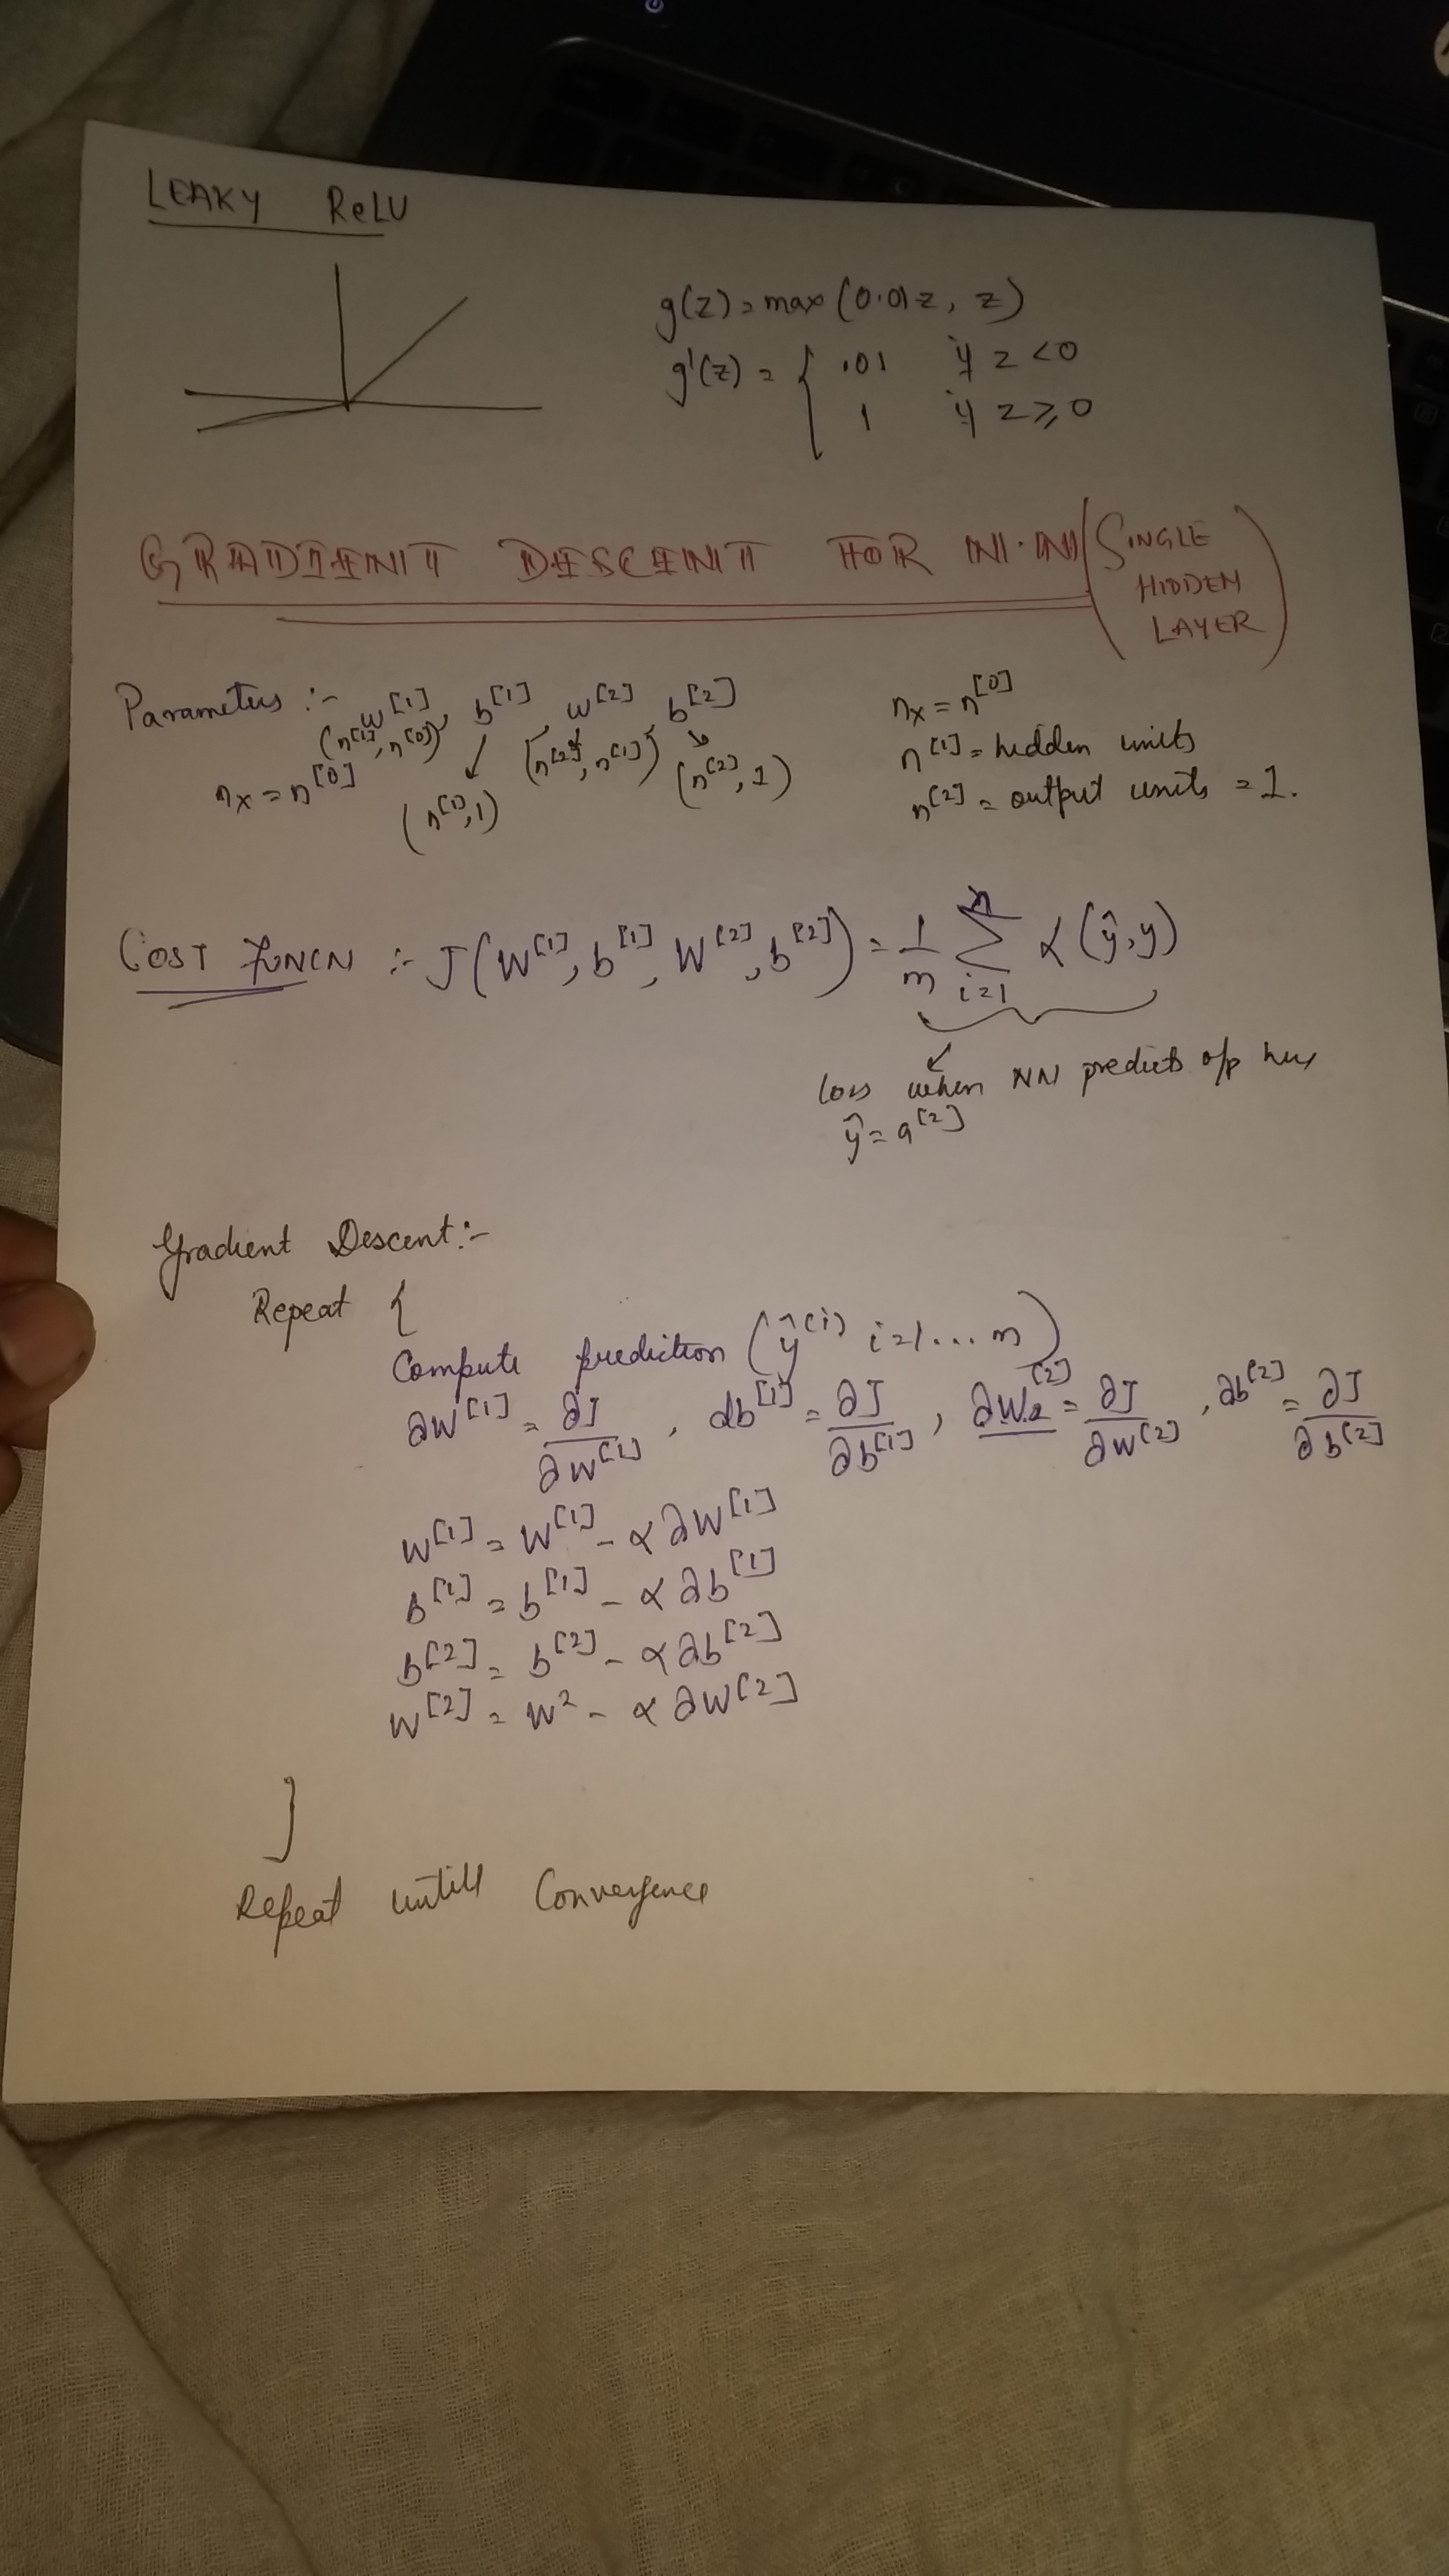 LEAKY ReLU
g(z) = max (0.01z, z)
g'(z) = { .01 if z < 0
1 if z ≥ 0
GRADIENT DESCENT FOR N.N (SINGLE HIDDEN LAYER)
Parameters :- w[1], b[1], w[2], b[2]
(n[1], n[0]) (n[2], n[1]) (n[2], 1)
nx = n[0] (n[1], 1)
nx = n[0]
n[1] = hidden units
n[2] = output units = 1.
COST FUNCN :- J(W[1], b[1], W[2], b[2]) = 1/m Σ i=1 L(ŷ, y)
loss when NN predicts o/p
ŷ = a[2]
Gradient Descent :-
Repeat {
Compute prediction (ŷ(i) i=1...m)
∂w[1] = ∂J/∂w[1], db[1] = ∂J/∂b[1], ∂w[2] = ∂J/∂w[2], ∂b[2] = ∂J/∂b[2]
w[1] = w[1] - α ∂w[1]
b[1] = b[1] - α ∂b[1]
b[2] = b[2] - α ∂b[2]
w[2] = w2 - α ∂w[2]
}
Repeat untill Convergence